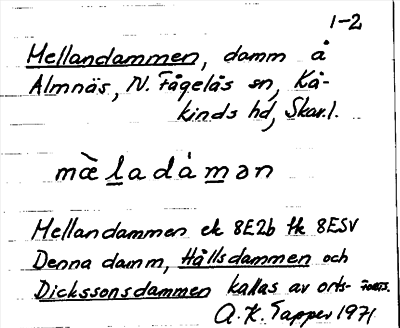 1-2
Mellandammen, damm å
Almnäs, N. Fågelås sn, Kå-
kinds hd, Skar.l.
mæ̀ladàmən
Mellandammen ek 8E2b tk 8ESV
Denna damm, Hällsdammen och
Dickssonsdammen kallas av orts- forts.
A.K. Tapper 1971